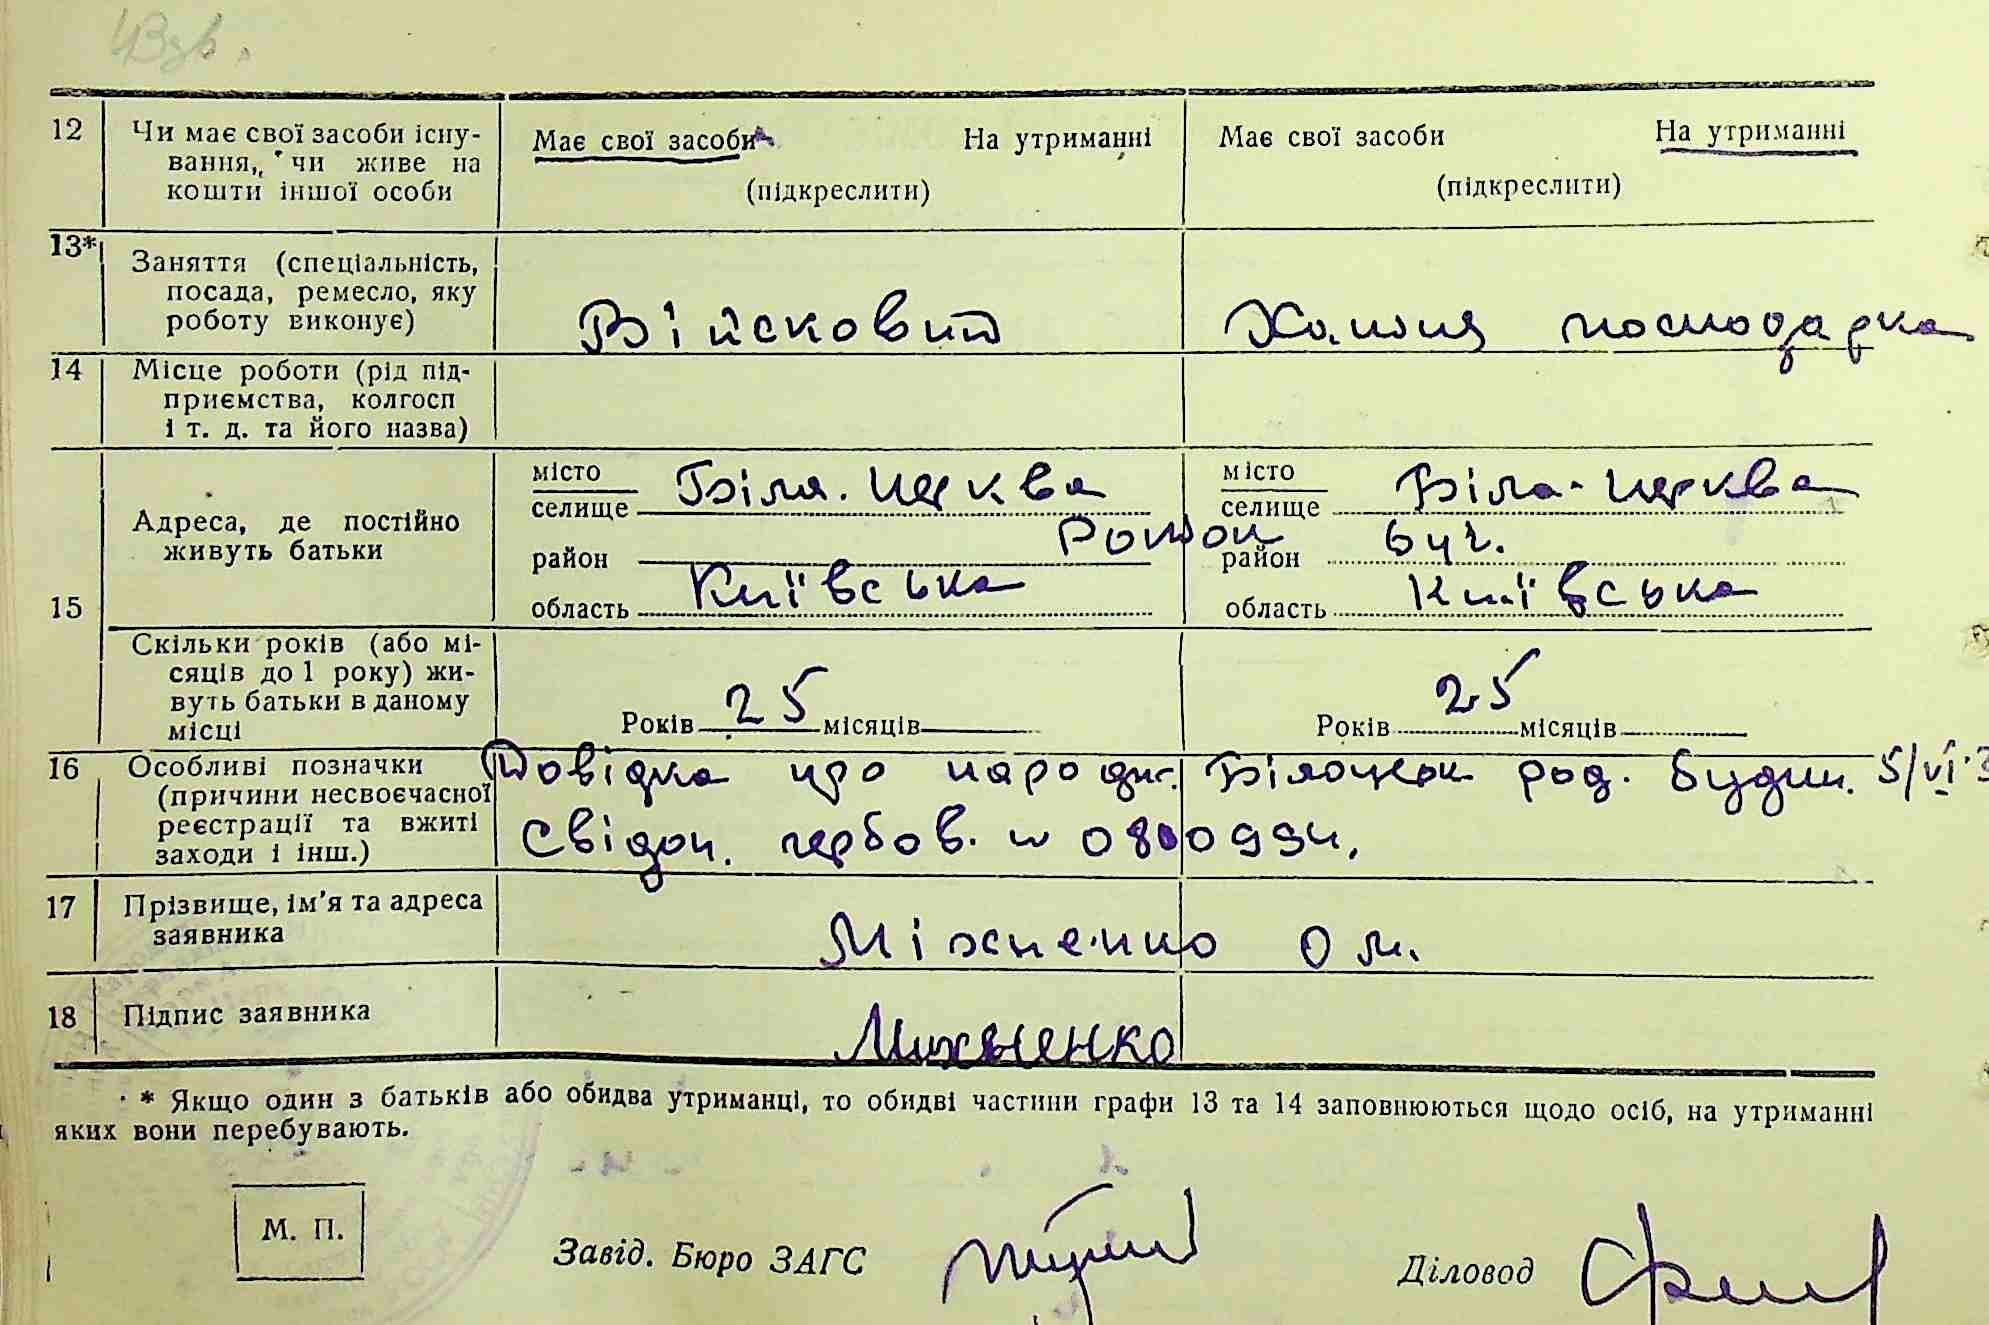 12 Чи має свої засоби існу-
вання, чи живе на
кошти іншої особи
Має свої засоби На утриманні
(підкреслити)
Має свої засоби На утриманні
(підкреслити)
13* Заняття (спеціальність,
посада, ремесло, яку
роботу виконує)
Війсковий
Хатня господарка
14 Місце роботи (рід під-
приємства, колгосп
і т. д. та його назва)
15 Адреса, де постійно
живуть батьки
місто
селище Біла-Церква
район
область Київська
місто
селище Біла-Церква
район
область Київська
Скільки років (або мі-
сяців до 1 року) жи-
вуть батьки в даному
місці
Років 25 місяців
Років 25 місяців
16 Особливі позначки
(причини несвоєчасної
реєстрації та вжиті
заходи і інш.)
Довідка про народж. Білоцерк род. будин. 5/VI
Свідоц. гербов. 
17 Прізвище, ім'я та адреса
заявника
Міхненко О М.
18 Підпис заявника
Михненко
* Якщо один з батьків або обидва утриманці, то обидві частини графи 13 та 14 заповнюються щодо осіб, на утриманні
яких вони перебувають.
М. П.
Завід. Бюро ЗАГС
Діловод